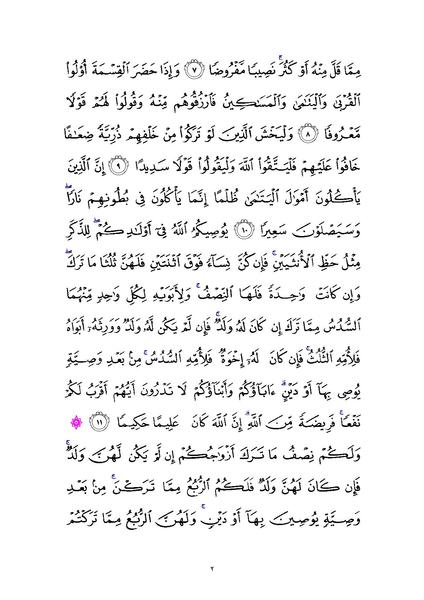 مِمَّا قَلَّ مِنْهُ أَوْ كَثُرَ ۚ نَصِيبًا مَّفْرُوضًا ٧ وَإِذَا حَضَرَ ٱلْقِسْمَةَ أُو۟لُوا۟
ٱلْقُرْبَىٰ وَٱلْيَتَـٰمَىٰ وَٱلْمَسَـٰكِينُ فَٱرْزُقُوهُم مِّنْهُ وَقُولُوا۟ لَهُمْ قَوْلًا
مَّعْرُوفًا ٨ وَلْيَخْشَ ٱلَّذِينَ لَوْ تَرَكُوا۟ مِنْ خَلْفِهِمْ ذُرِّيَّةً ضِعَـٰفًا
خَافُوا۟ عَلَيْهِمْ فَلْيَتَّقُوا۟ ٱللَّهَ وَلْيَقُولُوا۟ قَوْلًا سَدِيدًا ٩ إِنَّ ٱلَّذِينَ
يَأْكُلُونَ أَمْوَٰلَ ٱلْيَتَـٰمَىٰ ظُلْمًا إِنَّمَا يَأْكُلُونَ فِى بُطُونِهِمْ نَارًا ۖ
وَسَيَصْلَوْنَ سَعِيرًا ١٠ يُوصِيكُمُ ٱللَّهُ فِىٓ أَوْلَـٰدِكُمْ ۖ لِلذَّكَرِ
مِثْلُ حَظِّ ٱلْأُنثَيَيْنِ ۚ فَإِن كُنَّ نِسَآءً فَوْقَ ٱثْنَتَيْنِ فَلَهُنَّ ثُلُثَا مَا تَرَكَ ۖ
وَإِن كَانَتْ وَٰحِدَةً فَلَهَا ٱلنِّصْفُ ۚ وَلِأَبَوَيْهِ لِكُلِّ وَٰحِدٍ مِّنْهُمَا
ٱلسُّدُسُ مِمَّا تَرَكَ إِن كَانَ لَهُۥ وَلَدٌ ۚ فَإِن لَّمْ يَكُن لَّهُۥ وَلَدٌ وَوَرِثَهُۥٓ أَبَوَاهُ
فَلِأُمِّهِ ٱلثُّلُثُ ۚ فَإِن كَانَ لَهُۥٓ إِخْوَةٌ فَلِأُمِّهِ ٱلسُّدُسُ ۚ مِنۢ بَعْدِ وَصِيَّةٍ
يُوصِى بِهَآ أَوْ دَيْنٍ ۗ ءَابَآؤُكُمْ وَأَبْنَآؤُكُمْ لَا تَدْرُونَ أَيُّهُمْ أَقْرَبُ لَكُمْ
نَفْعًا ۚ فَرِيضَةً مِّنَ ٱللَّهِ ۗ إِنَّ ٱللَّهَ كَانَ عَلِيمًا حَكِيمًا ١١ ۞
وَلَكُمْ نِصْفُ مَا تَرَكَ أَزْوَٰجُكُمْ إِن لَّمْ يَكُن لَّهُنَّ وَلَدٌ ۚ
فَإِن كَانَ لَهُنَّ وَلَدٌ فَلَكُمُ ٱلرُّبُعُ مِمَّا تَرَكْنَ ۚ مِنۢ بَعْدِ
وَصِيَّةٍ يُوصِينَ بِهَآ أَوْ دَيْنٍ ۚ وَلَهُنَّ ٱلرُّبُعُ مِمَّا تَرَكْتُمْ
٢